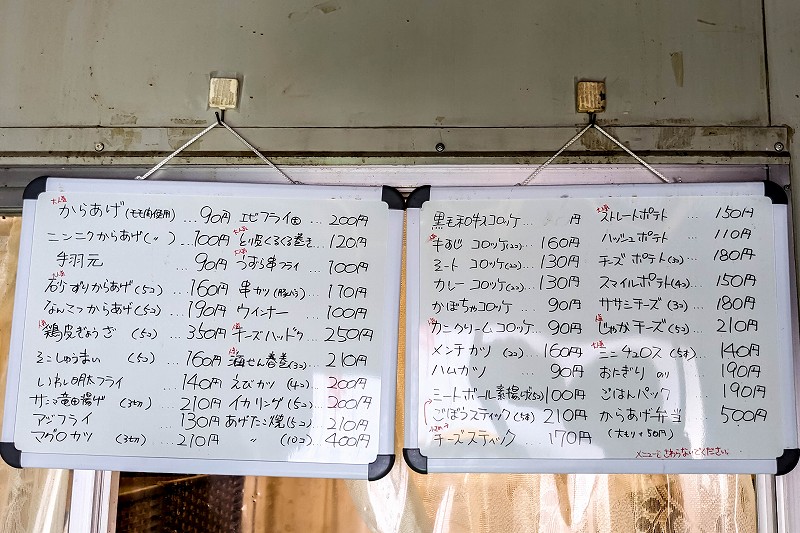 大人気
からあげ(モモ肉使用) … 90円
ニンニクからあげ(〃) … 100円
手羽元 … 90円
大人気
砂ずりからあげ(5コ) 160円
なんこつからあげ(5コ) … 190円
人気
鶏皮ぎょうざ (5コ) … 350円
えこしゅうまい (5コ) 160円
いわし明太フライ … 140円
サンマ竜田揚げ (3切) … 210円
アジフライ … 130円
マグロカツ (3切) … 210円
エビフライ … 200円
大人気
とり皮くるくる巻き … 120円
大人気
うずら串フライ … 100円
串カツ … 170円
ウインナー … 100円
人気
チーズハットグ … 250円
人気
海せん春巻(3コ) … 210円
えびカツ (4コ) … 200円
イカリング(5コ) … 200円
あげたこ焼(5コ) … 210円
〃 (10コ) … 400円
黒毛和牛コロッケ … 円
人気
牛すじコロッケ(2コ) … 160円
ミートコロッケ(2コ) … 130円
カレーコロッケ(2コ) … 130円
かぼちゃコロッケ … 90円
人気
カニクリームコロッケ … 90円
メンチカツ (2コ) … 160円
ハムカツ … 90円
ミートボール素揚げ(5コ) 100円
ごぼうスティック(5本) 210円
チーズスティック … 170円
大人気
ストレートポテト … 150円
ハッシュポテト … 110円
チーズポテト(3コ) … 180円
スマイルポテト(4コ) … 150円
ササミチーズ (3コ) … 180円
人気
じゃがチーズ(5コ) … 210円
大人気
ミニチュロス (5本) … 140円
おにぎり のり … 190円
ごはんパック … 190円
からあげ弁当 500円
(大もり+50円)
メニューをさわらないでください。